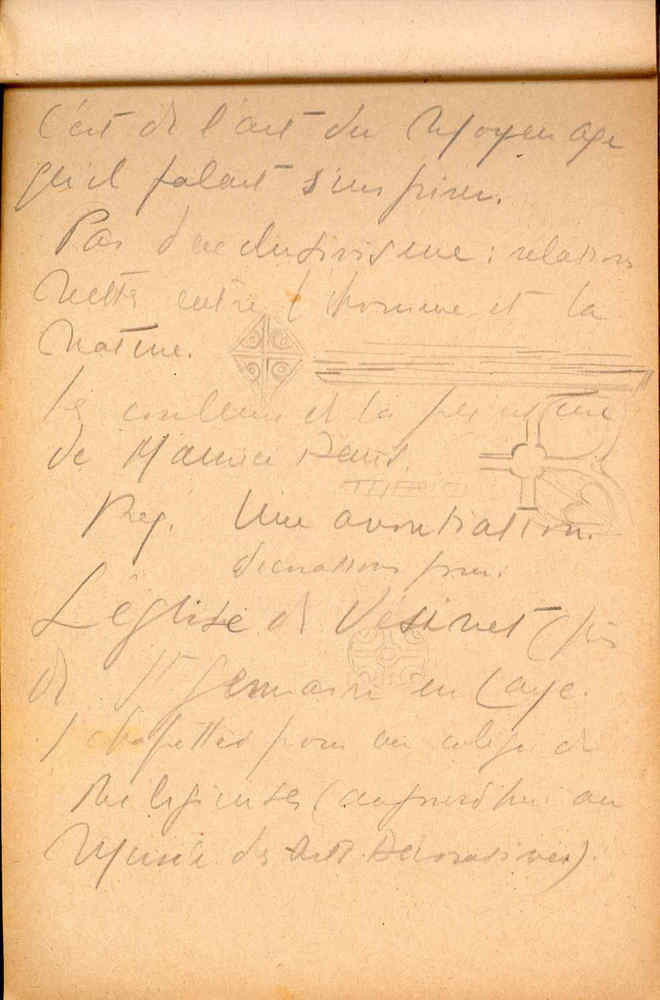 C'est de l'art du Moyen age
qu'il falait s'inspirer.
Pas d'exclusivisme : relations
nettes entre l'homme et la
Nature.
les couleurs et la peinture
de Maurice Denis
Reg. Une
décorations pour:
L'église de Vésinet (près
de St Germain en Laye.
1 chapelles pour un colège de
Religieuses (aujourd'hui au
Musée des Arts Décoratives).